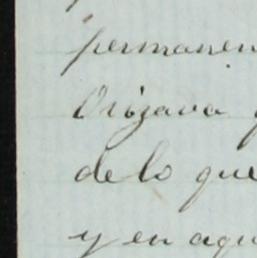 permanen
Orizava
de lo que
y en aqu